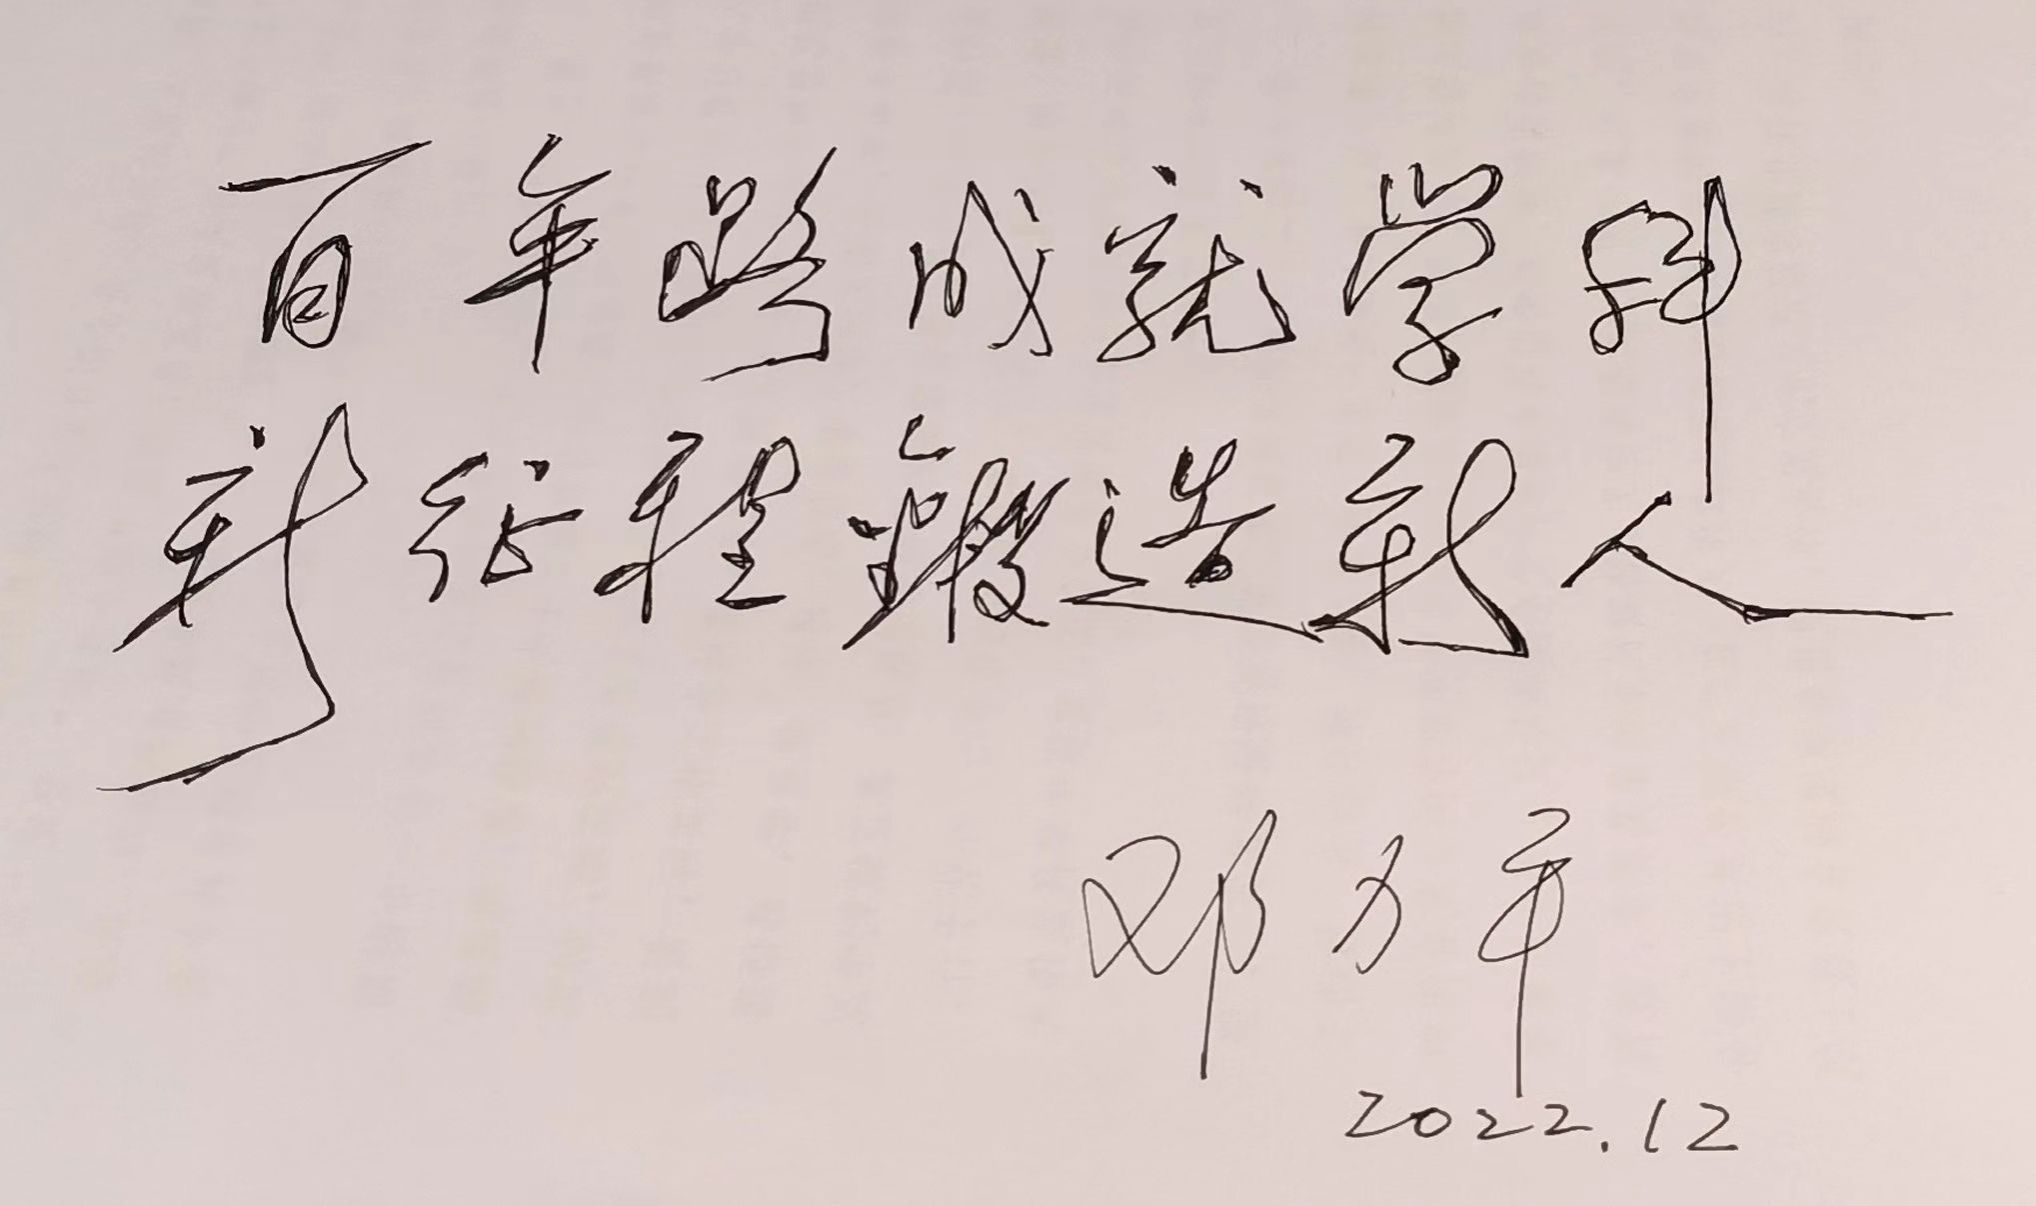 百年路成就学科
新征程鍛造新人
邓力平
2022.12